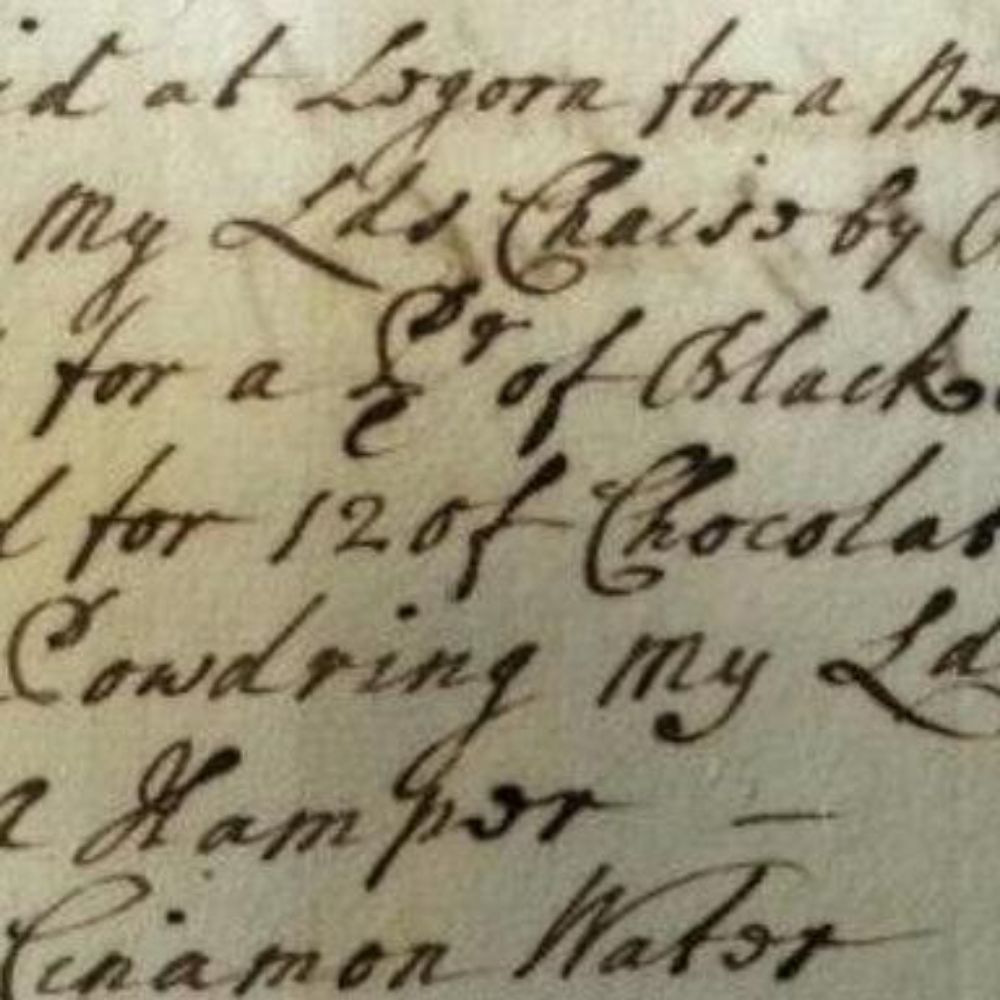 id at Legorn for a
My Lds Chaise by
for a Pr of Black
for 12 of Chocolat
Powdring my Ld
a Hamper —
Cinamon Water